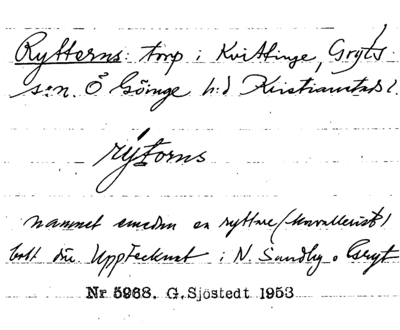 Rytterns: torp i Kvittinge, Gryts
s:n. Ö Göinge h:d Kristianstads l.
rýtorns
namnet emedan en ryttare (kavallerist)
bott där. Upptecknat i N. Sandby o Gryt
Nr 5968. G. Sjöstedt 1953